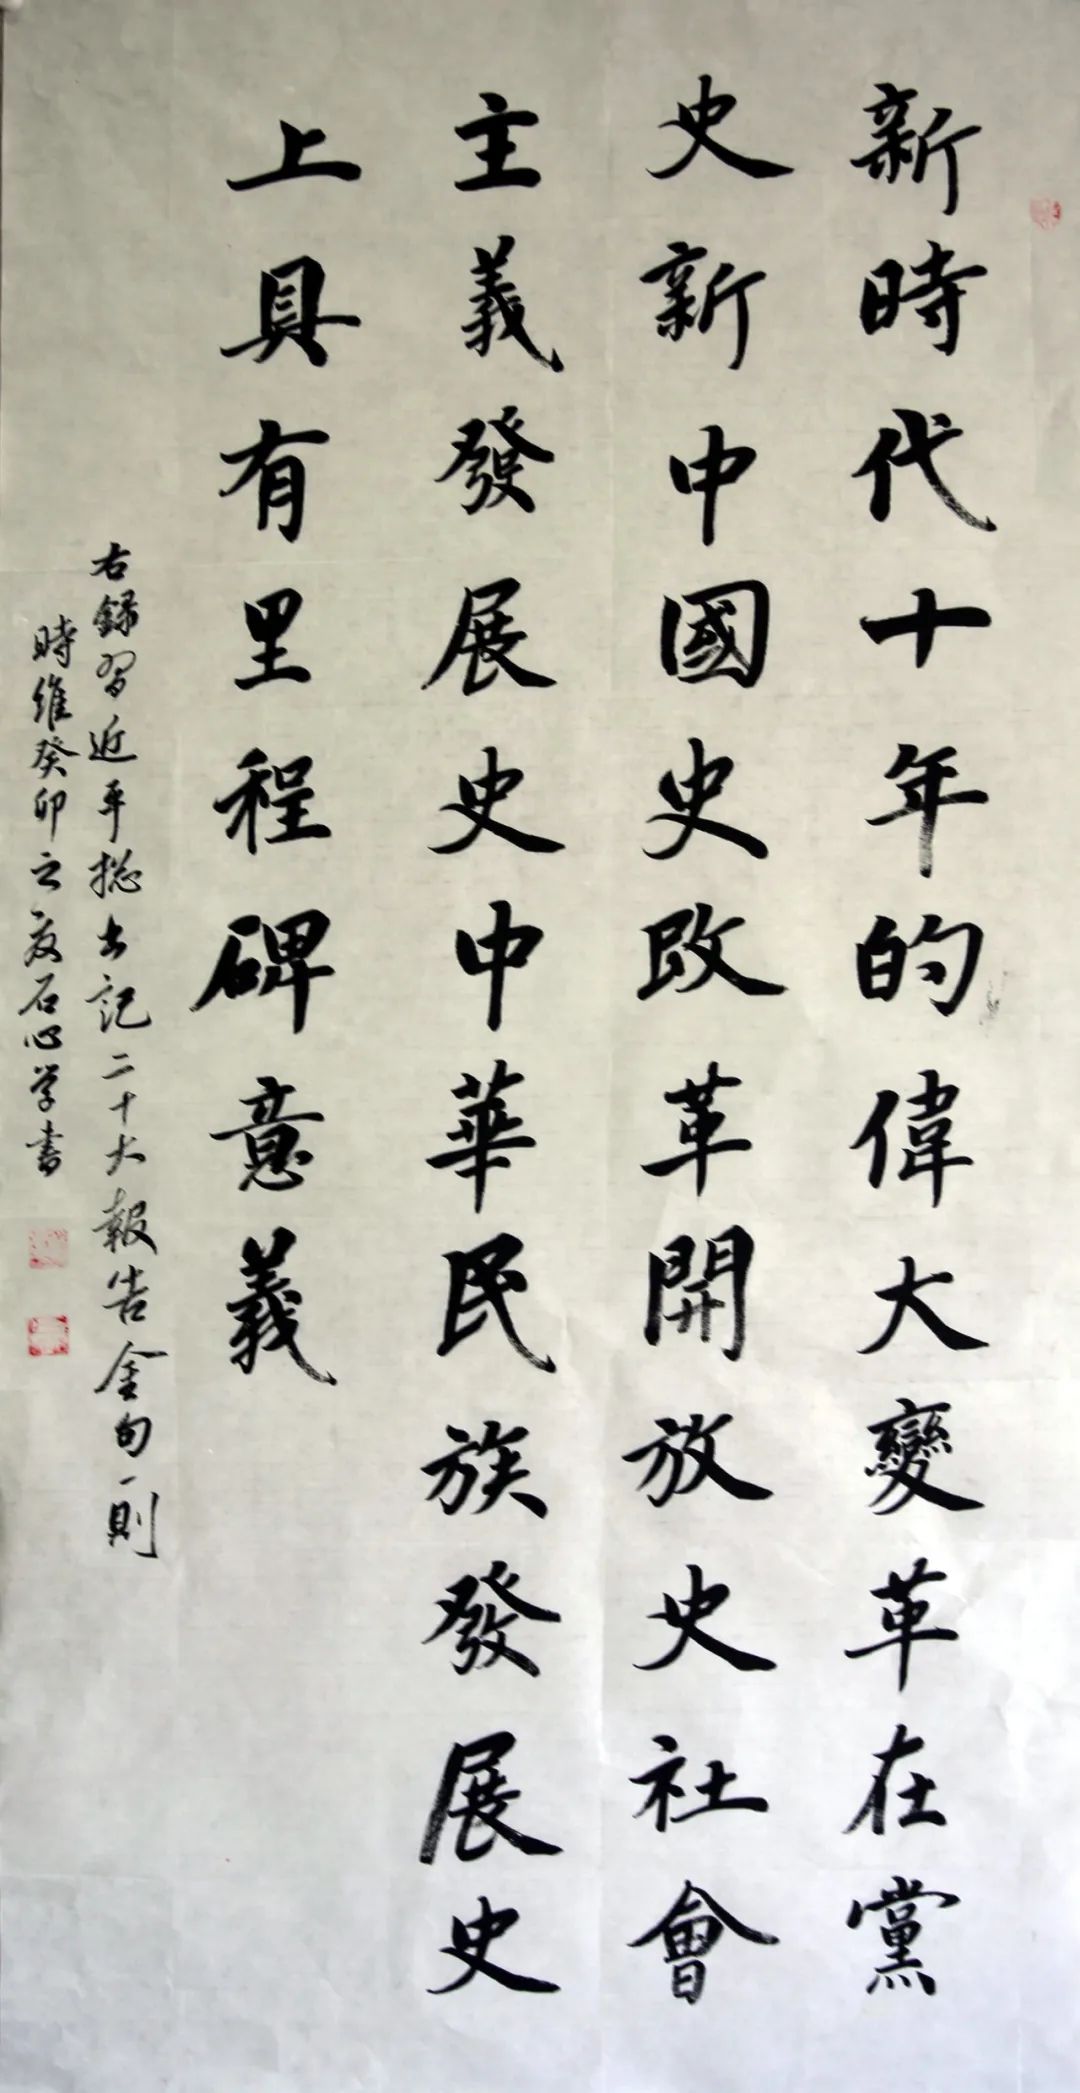 新時代十年的偉大變革在黨
史新中國史改革開放史社會
主義發展史中華民族發展史
上具有里程碑意義
右録習近平總書記二十大報告金句一則
時維癸卯之夏石心學書